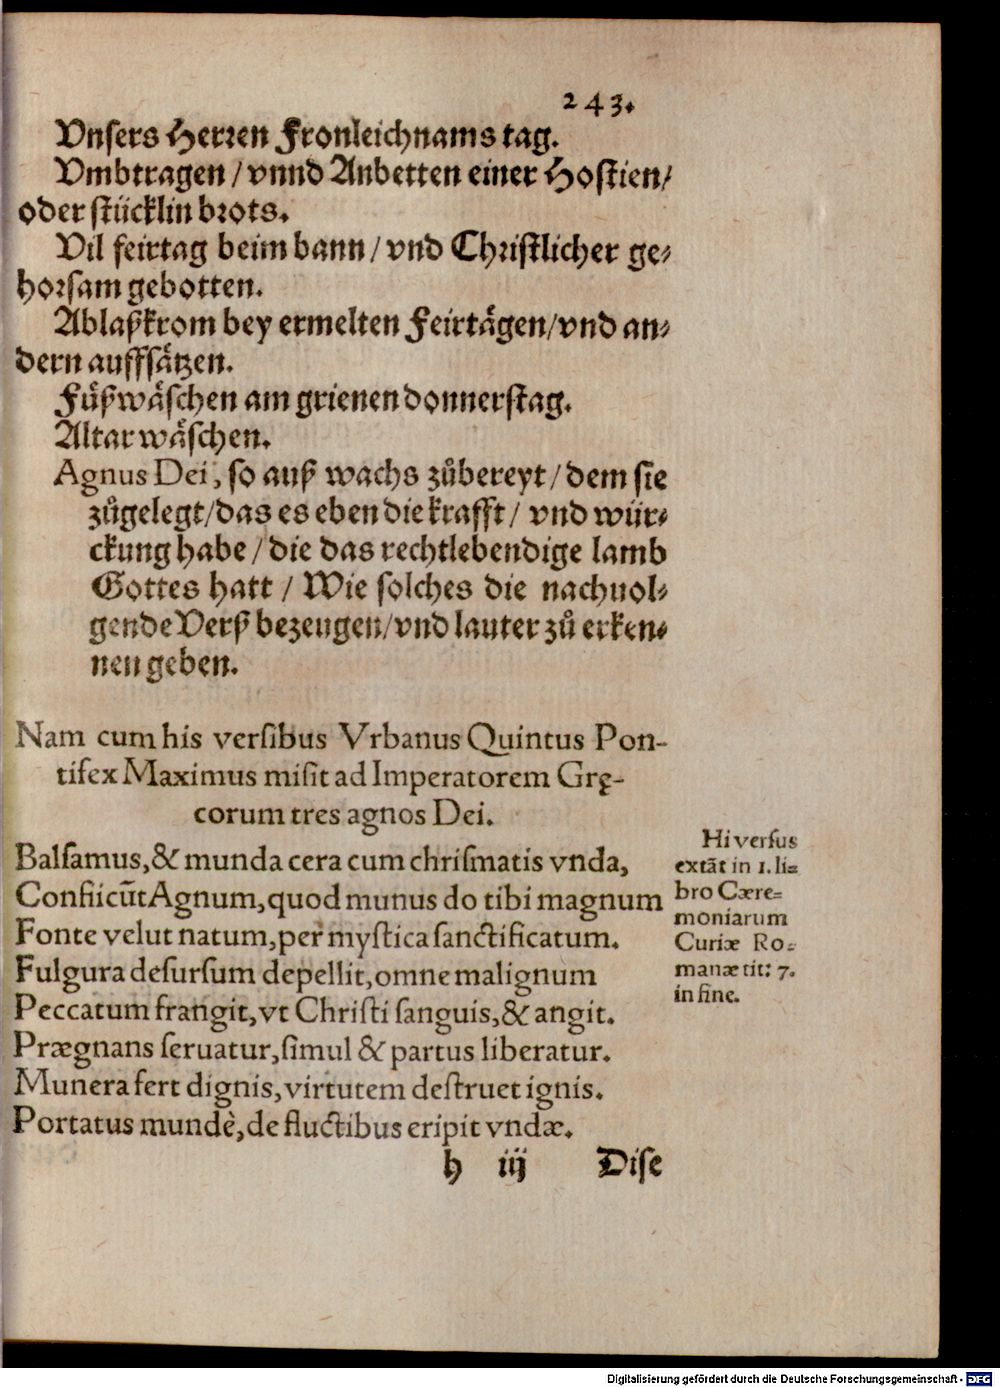 243.
Vnsers Herren Fronleichnams tag.
Vmbtragen / vnnd Anbetten einer Hostien /
oder stücklin brots.
Vil feirtag beim bann / vnd Christlicher ge-
horsam gebotten.
Ablaßkrom bey ermelten Feirtågen / vnd an-
dern aufffsåtzen.
Fůßwåschen am grienen donnerstag.
Altar wåschen.
Agnus Dei, so auß wachs zůbereyt / dem sie
zůgelegt / das es eben die krafft / vnd wür-
ckung habe / die das recht lebendige lamb
Gottes hatt / Wie solches die nachuol-
gende Verß bezeugen / vnd lauter zů erken-
nen geben.
Nam cum his versibus Vrbanus Quintus Pon-
tifex Maximus misit ad Imperatorem Grę-
corum tres agnos Dei.
Balsamus, & munda cera cum chrismatis vnda,
Confiicūt Agnum, quod munus do tibi magnum
Fonte velut natum, per mystica sanctificatum.
Fulgura desursum depellit, omne malignum
Peccatum frangit, vt Christi sanguis, & angit.
Prægnans seruatur, simul & partus liberatur.
Munera fert dignis, virtutem destruet ignis.
Portatus mundè, de fluctibus eripit vndæ.
Hi versus
extāt in 1. li-
bro Cære-
moniarum
Curiæ Ro-
manæ tit: 7.
in fine.
h iij Dise
Digitalisierung gefördert durch die Deutsche Forschungsgemeinschaft - DFG